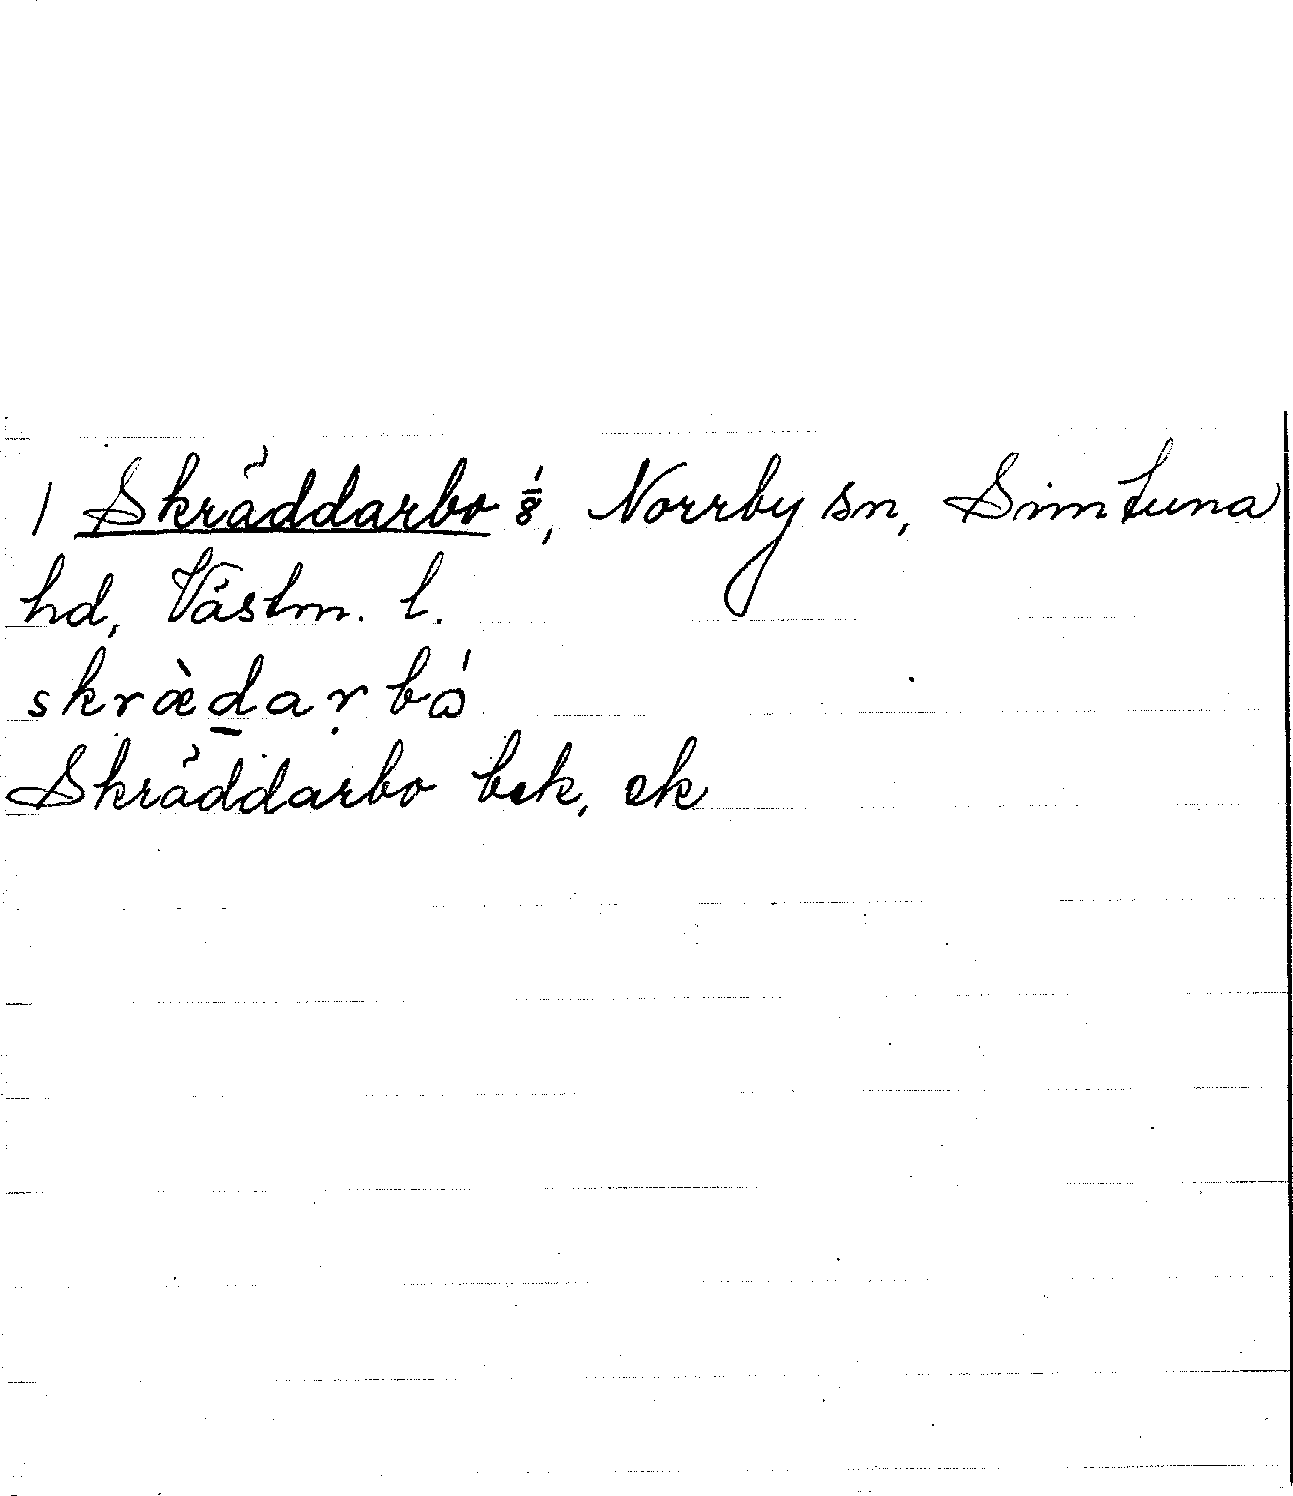 1 Skräddarbo 1/8, Norrby sn, Simtuna
hd, Västm. l.
skræ̀darbɷ́
Skräddarbo bek, ek